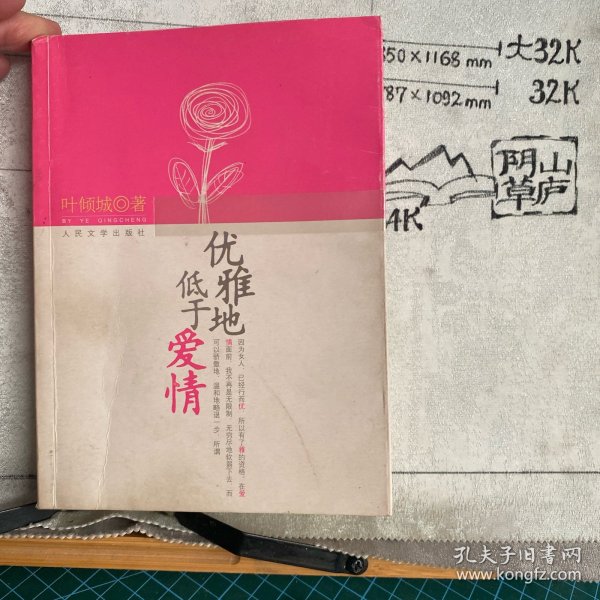 叶倾城◎著
BY YE QINGCHENG
人民文学出版社
优雅地
低于
爱情
因为女人,已经行而优,所以有了雅的资格,在爱
情面前,我不再是无限制、无穷尽地软弱下去,而
可以骄傲地、温和地略退一步,所谓
850×1168mm 大32K
787×1092mm 32K
4K
阴山
草庐
孔夫子旧书网
www.kongfz.com